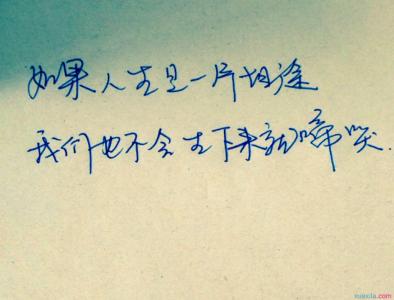 如果人生是一片坦途
我们也不会生下来就啼哭.
xuexila.com